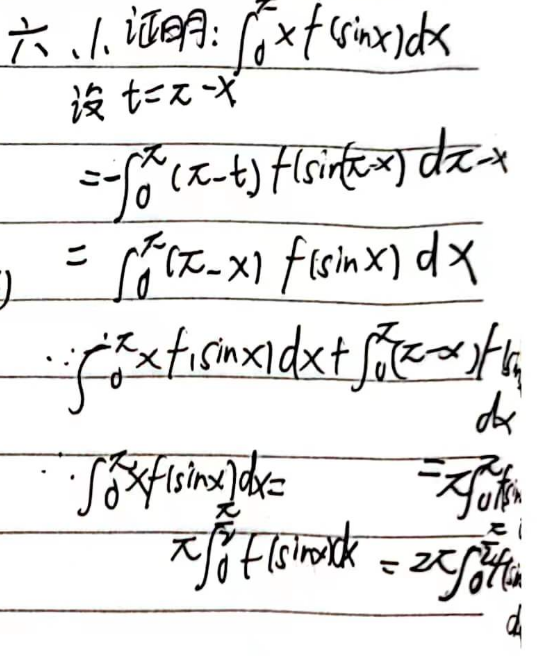 六、1. 证明: ∫₀^π x f(sinx)dx
设 t=π-x
=-∫₀^π (π-t) f(sin(π-x) dπ-x
= ∫₀^π (π-x) f(sinx) dx
∴ ∫₀^π x f(sinx)dx + ∫₀^π (π-x) f(sin
dx
∴ ∫₀^π x f(sinx)dx= =π∫₀^π f(sin
π∫₀^{π/2} f(sinx)dx = 2π∫₀^{π/2} f(sin
d